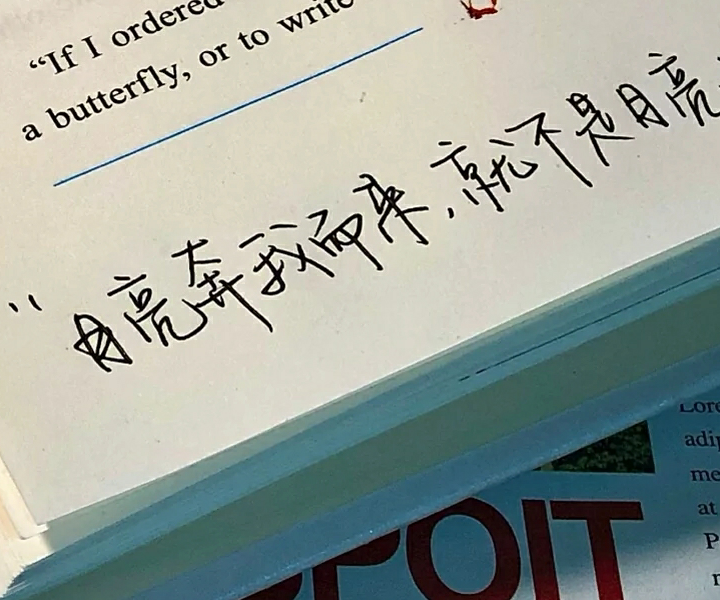 “If I ordered
a butterfly, or to write
“月亮奔我而来，就不是月亮
Lore
adip
me
at
P
POIT